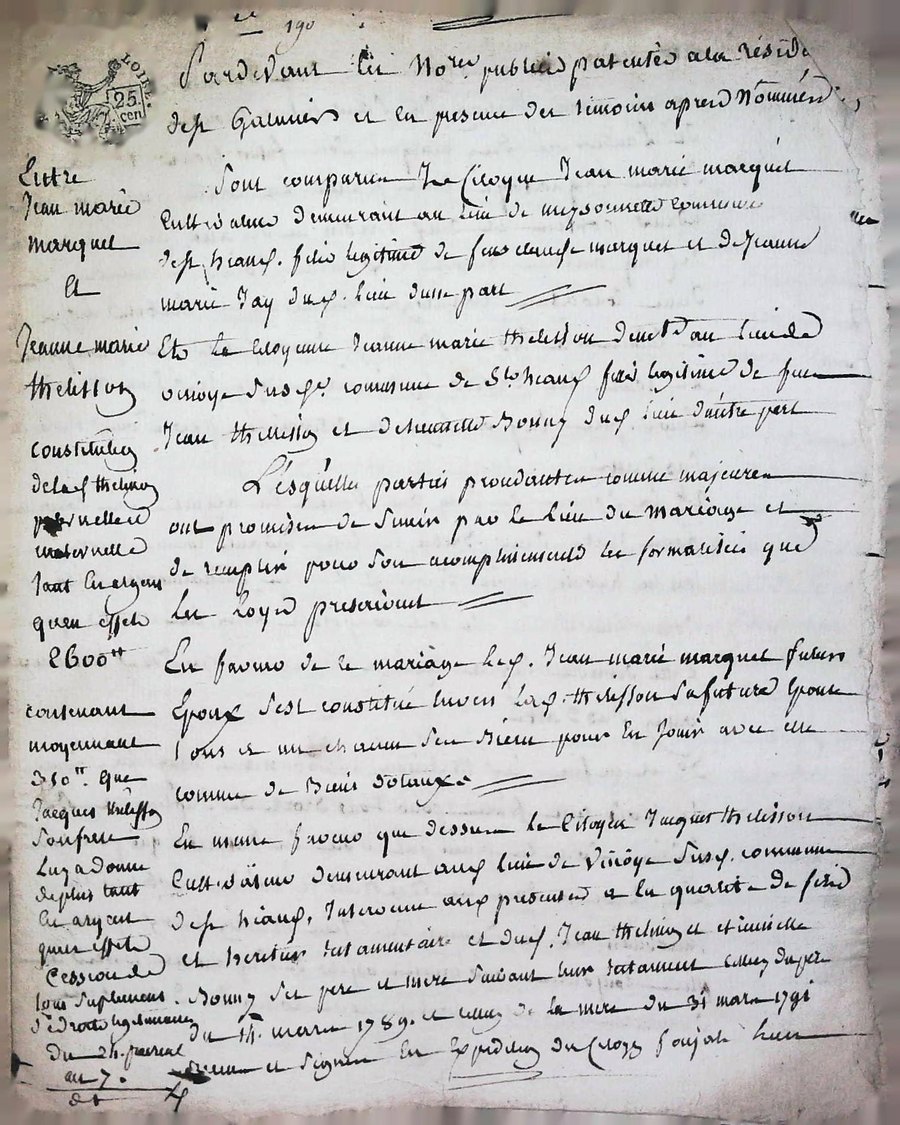 190
LOIRE
25.
cen
Pardevant les Nores publics patentés a la réside
de st Galmier et en presence des temoins apres Nommés
Sont comparus Le Citoyen Jean marie marquet
Cultivateur demeurant au lieu de commune
de st heand. fils legitime de feu claude marquet et de Jeanne
marie Jay dud. lieu dune part
Et la Citoyenne Jeanne marie thelisson demt. au lieu de
susd. commune de St heand fille legitime de feu
Jean thelisson et de Bonny dud lieu dautre part
Lesquelles parties procedantes comme majeures
ont promises de sunir par le lien du mariage et
de remplir pour son acomplissement les formalités que
les loyx prescrivent
En faveur de ce mariage led. Jean marie marquet futur
Epoux s'est constitué envers lad. thelisson sa future Epouse
tous et un chacun ses Biens pour En Jouir avec elle
comme de Biens dotaux.
En meme faveur que dessus le Citoyen Jacques thelisson
Cultivateur demeurant aud lieu de susd. commune
de st heand. Intervenu aux presentes en la qualité de frere
et heritier testamentaire et dud. Jean thelisson et
Bonny ses pere et mere suivant leur testament celluy du pere
du 14. mars 1789. et celluy de la mere du 31 mars 1791
et signés En Expedition du Citoyen
Entre
Jean marie
marquet
Et
Jeanne marie
thelisson
constitution
de lad thelisson
paternelle et
maternelle
tant En argent
quen effets
2600tt
contenant
moyennant
310tt. que
Jacques thelisson
son frere
Luy a donné
de plus tant
En argent
quen effets
Cession de
tous suplement.
de droits legitimaires
du 24.
an 7.